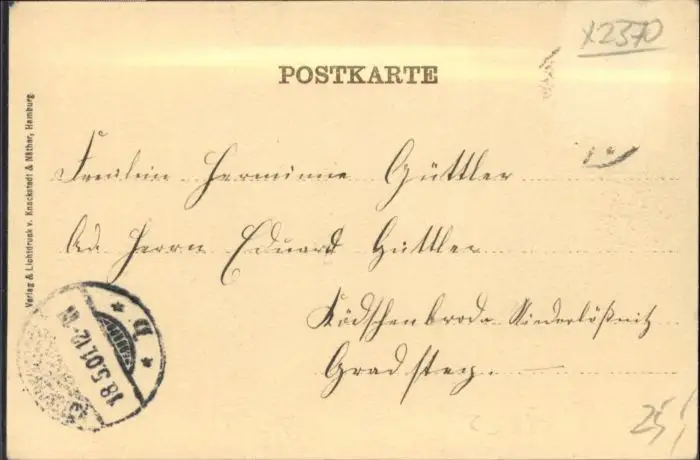 X2370
POSTKARTE
Verlag & Lichtdruck v. Knackstedt & Näther, Hamburg.
Fräulein Herminie Güttler
Ad. Herrn Eduard Güttler
Ködschenbroda-Niederlößnitz
Gradsteg.
18.5.01.12-1N
D
25